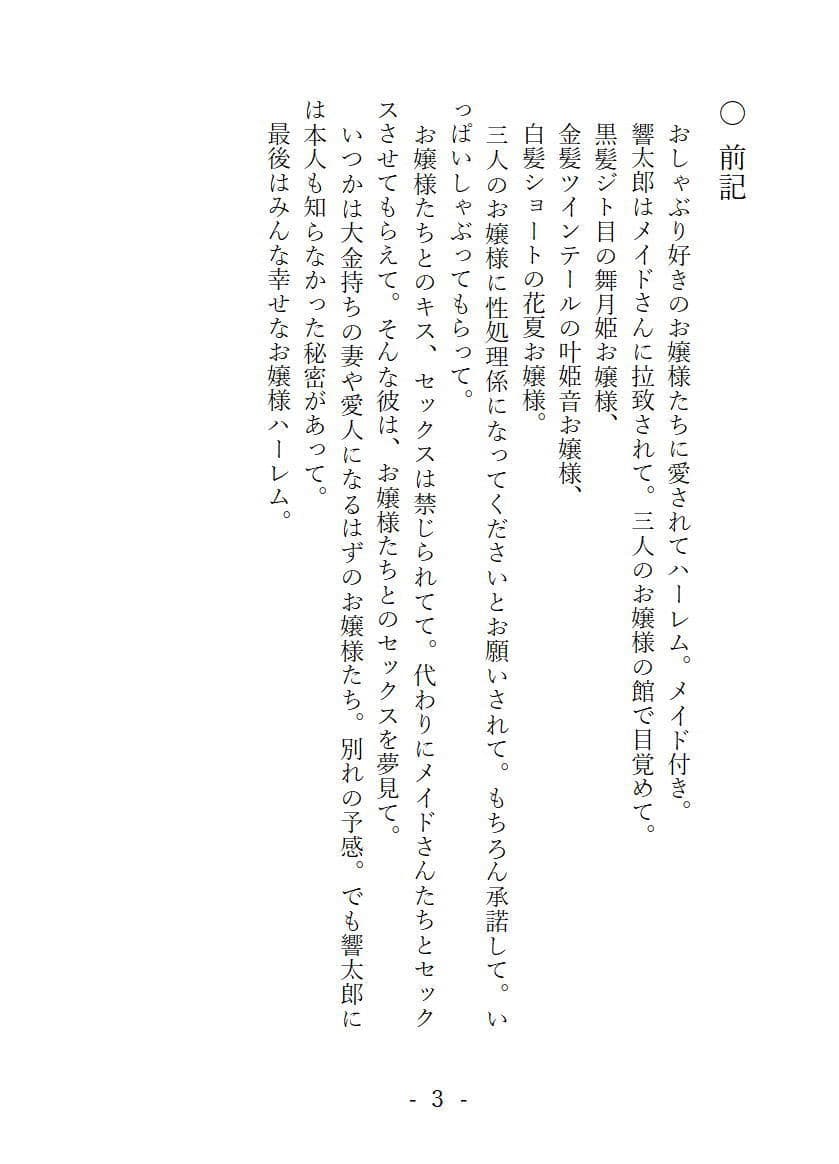 〇 前記
おしゃぶり好きのお嬢様たちに愛されてハーレム。メイド付き。
響太郎はメイドさんに拉致されて。三人のお嬢様の館で目覚めて。
黒髪ジト目の舞月姫お嬢様、
金髪ツインテールの叶姫音お嬢様、
白髪ショートの花夏お嬢様。
三人のお嬢様に性処理係になってくださいとお願いされて。もちろん承諾して。い
っぱいしゃぶってもらって。
お嬢様たちとのキス、セックスは禁じられてて。代わりにメイドさんたちとセック
スさせてもらえて。そんな彼は、お嬢様たちとのセックスを夢見て。
いつかは大金持ちの妻や愛人になるはずのお嬢様たち。別れの予感。でも響太郎に
は本人も知らなかった秘密があって。
最後はみんな幸せなお嬢様ハーレム。
- 3 -